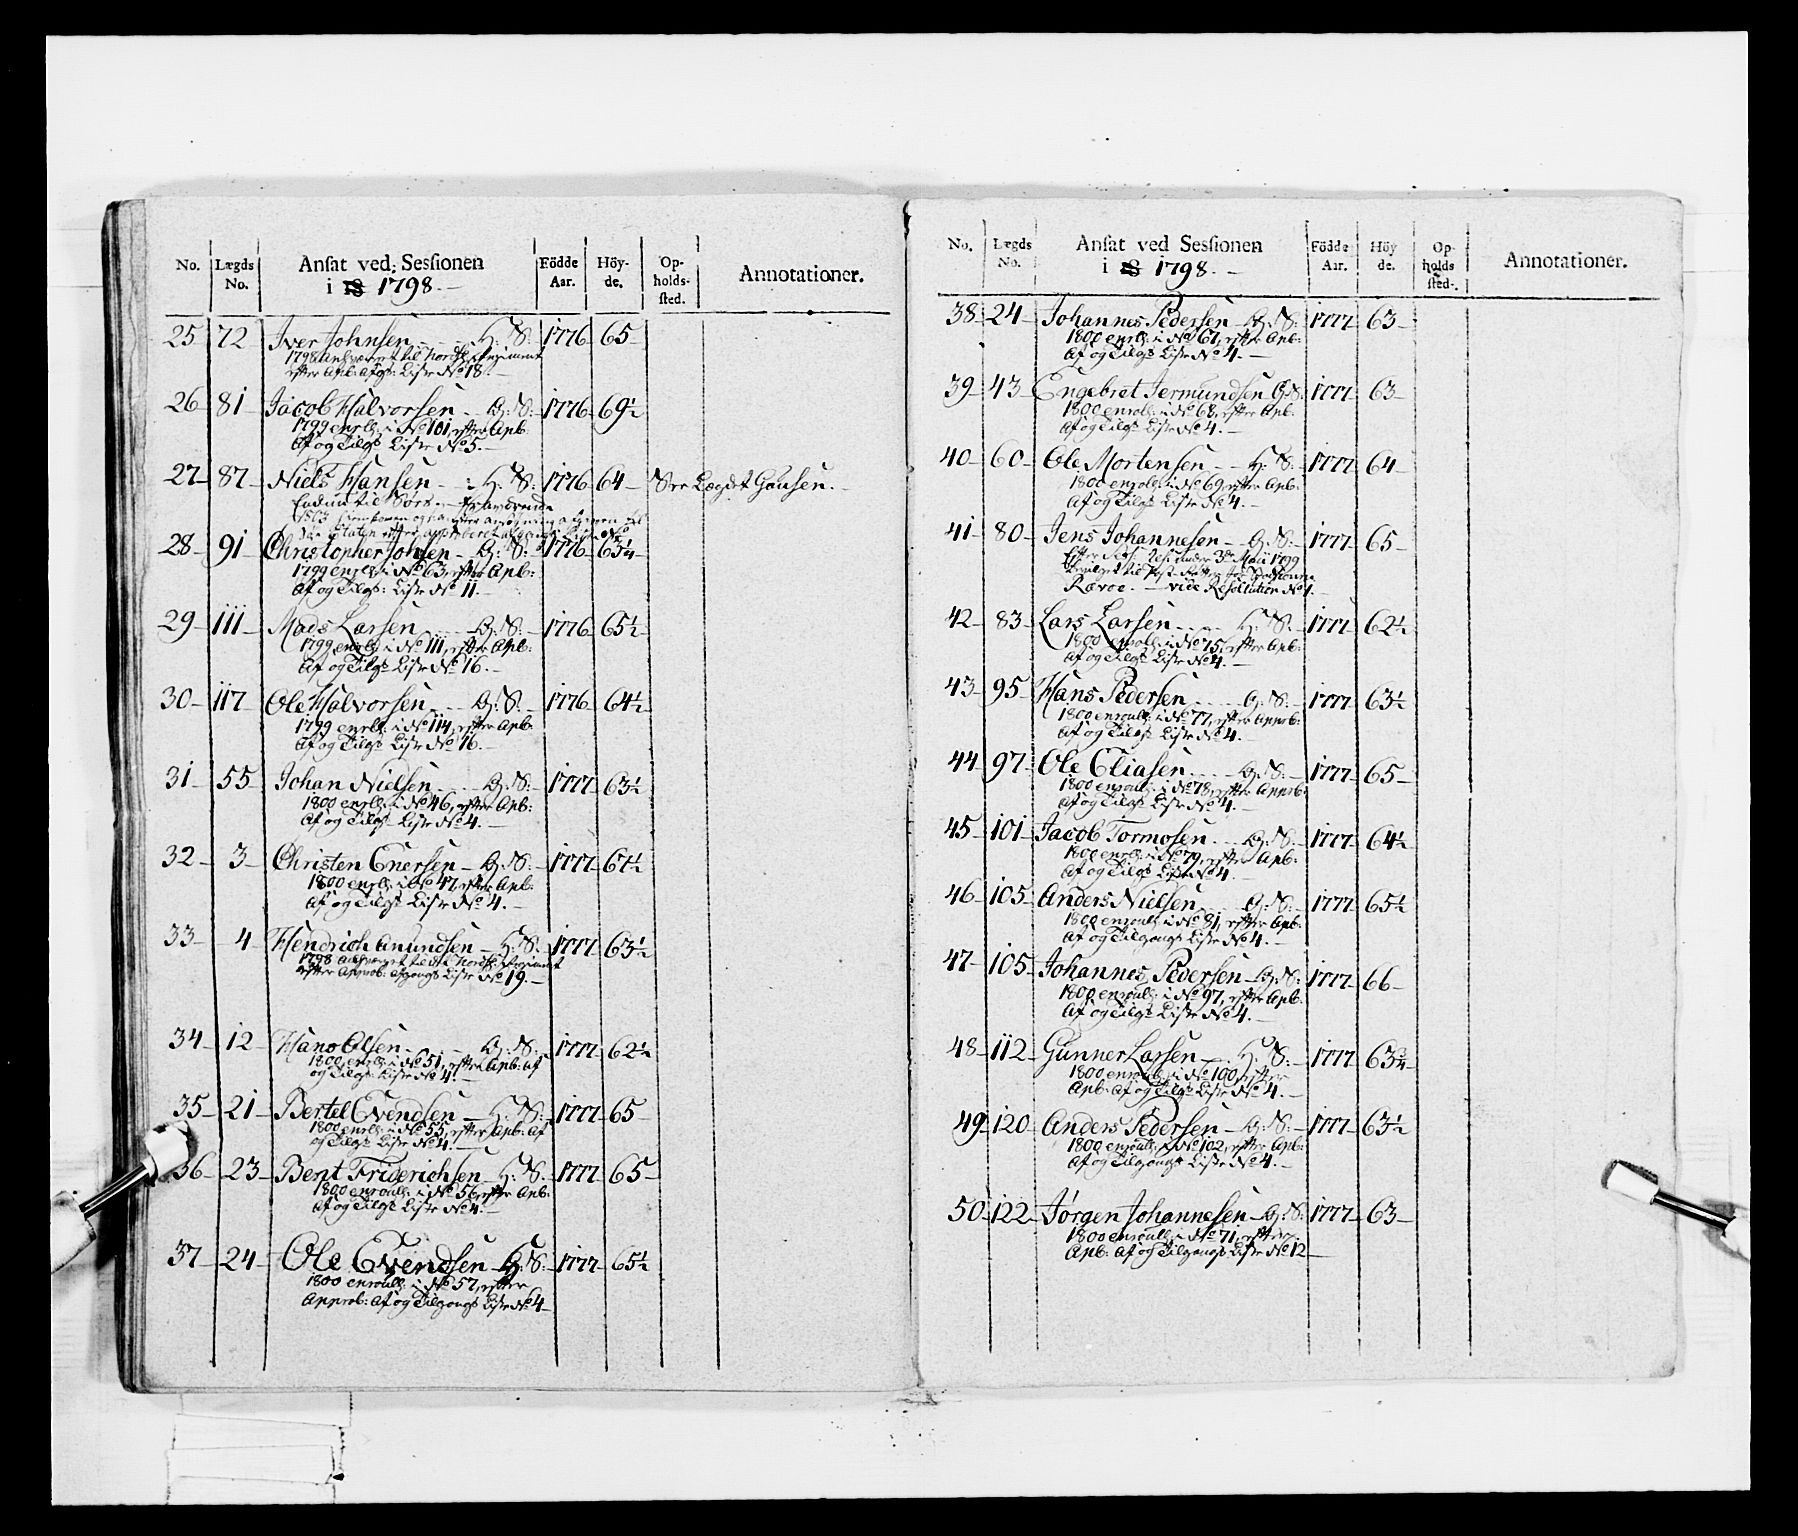 No. Lægds No. Ansat ved Sessionen i 18 1798.— Födde Aar. Höy-de. Op-holds-sted. Annotationer.
25 72 Iver Johnsen - - - H: S: 1776 65-
1798 til Nordf: Regiment
efter Apb: Afgs: Liste No 18.—
26 81 Jacob Halvorsen - - G: S: 1776 69½
1799 enrll: i No 101, efter Apb:
Af og Tilgs Liste No 5.—
27 87 Niels Hansen - - H: S: 1776 64- See Lægdt Hansen.—
28 91 Christopher Johsen - G: S: 1776 63¼
1799 enrll: i No 63, efter Apb:
Af og Tilgs: Liste No 11.—
29 111 Mads Larsen - - G: S: 1776 65½
1799 enrll: i No 111, efter Apb:
Af og Tilgs Liste No 16.—
30 117 Ole Halvorsen - - G: S: 1776 64½
1799 enrll: i No 114, efter Apb:
Af og Tilgs Liste No 16.—
31 55 Johan Nielsen - - G: S: 1777 63½
1800 enrll: i No 46, efter Apb:
Af og Tilgs Liste No 4.—
32 3 Christen Enersen - G: S: 1777 67½
1800 enrll: i No 47, efter Apb:
Af og Tilgs Liste No 4.—
33 4 Hendrich Amundsen - H: S: 1777 63½
1798 til Nordf: Regiment
efter Approb: Afgangs Liste No 19.—
34 12 Hans Olsen - - - G: S: 1777 62½
1800 enrll: i No 51, efter Apb: Af
og Tilgs: Liste No 4.—
35 21 Bertel Evendsen - H: S: 1777 65-
1800 enrll: i No 55, efter Apb: Af
og Tilgs: Liste No 4.—
36 23 Bent Friderichsen - H: S: 1777 65-
1800 enroull: i No 56, efter Apb:
Af og Tilgs Liste No 4.—
37 24 Ole Evendsen - S: 1777 65½
1800 enroull: i No 57, efter
Approb: Af og Tilgangs Liste No 4-
No. Lægds No. Ansat ved Sessionen i 18 1798.— Födde Aar. Höy de. Op-holds sted. Annotationer.
38 24 Johannes Pedersen - G: S: 1777 63-
1800 enrll: i No 67, efter Apb:
Af og Tilgs Liste No 4.—
39 43 Engebret Jermundsen G: S: 1777 63-
1800 enroll: i No 68, efter Apb:
Af og Tilgs Liste No 4.—
40 60 Ole Mortensen - - H: S: 1777 64-
1800 enroll: i No 69, efter Apb:
Af og Tilgs Liste No 4.—
41 80 Jens Johannesen - G: S: 1777 65-
Efter 3de Maii 1799
Rævoe.— vide Resolution No 1.—
42 83 Lars Larsen - - - H: S: 1777 62½
1800 enroll: i No 75, efter Apb:
Af og Tilgs Liste No 4.—
43 95 Hans Pedersen - - G: S: 1777 63½
1800 enroull: i No 77, efter Approb:
Af og Tilgs Liste No 4.—
44 97 Ole Eliasen - - - G: S: 1777 65-
1800 enroull: i No 78, efter Approb:
Af og Tilgs Liste No 4.—
45 101 Jacob Tormosen - - G: S: 1777 64½
1800 enrll: i No 79, efter Apb:
Af og Tilgs Liste No 4.—
46 105 Anders Nielsen - - G: S: 1777 65½
1800 enroull: i No 81, efter Apb:
Af og Tilgangs Liste No 4.—
47 105 Johannes Pedersen - G: S: 1777 66-
1800 enroull: i No 97, efter Apb:
Af og Tilgs Liste No 4.—
48 112 Gunner Larsen - - H: S: 1777 63¾
1800 enroull: i No 100, efter
Apb: Af og Tilgs Liste No 4.—
49 120 Anders Pedersen - G: S: 1777 63½
1800 enroull: i No 102, efter Apb:
Af og Tilgangs Liste No 4.—
50 122 Jørgen Johannesen - G: S: 1777 63-
1800 enroull: i No 71, efter
Apb: Af og Tilgangs Liste No 12-